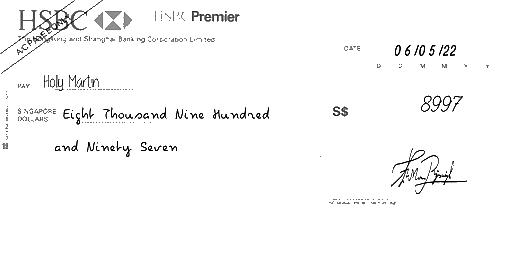 HSBC HSBC Premier
The Hongkong and Shanghai Banking Corporation Limited
DATE 06/05/22
D D M M Y Y
PAY Holly Martin
SINGAPORE DOLLARS Eight Thousand Nine Hundred
S$ 8997
and Ninety Seven